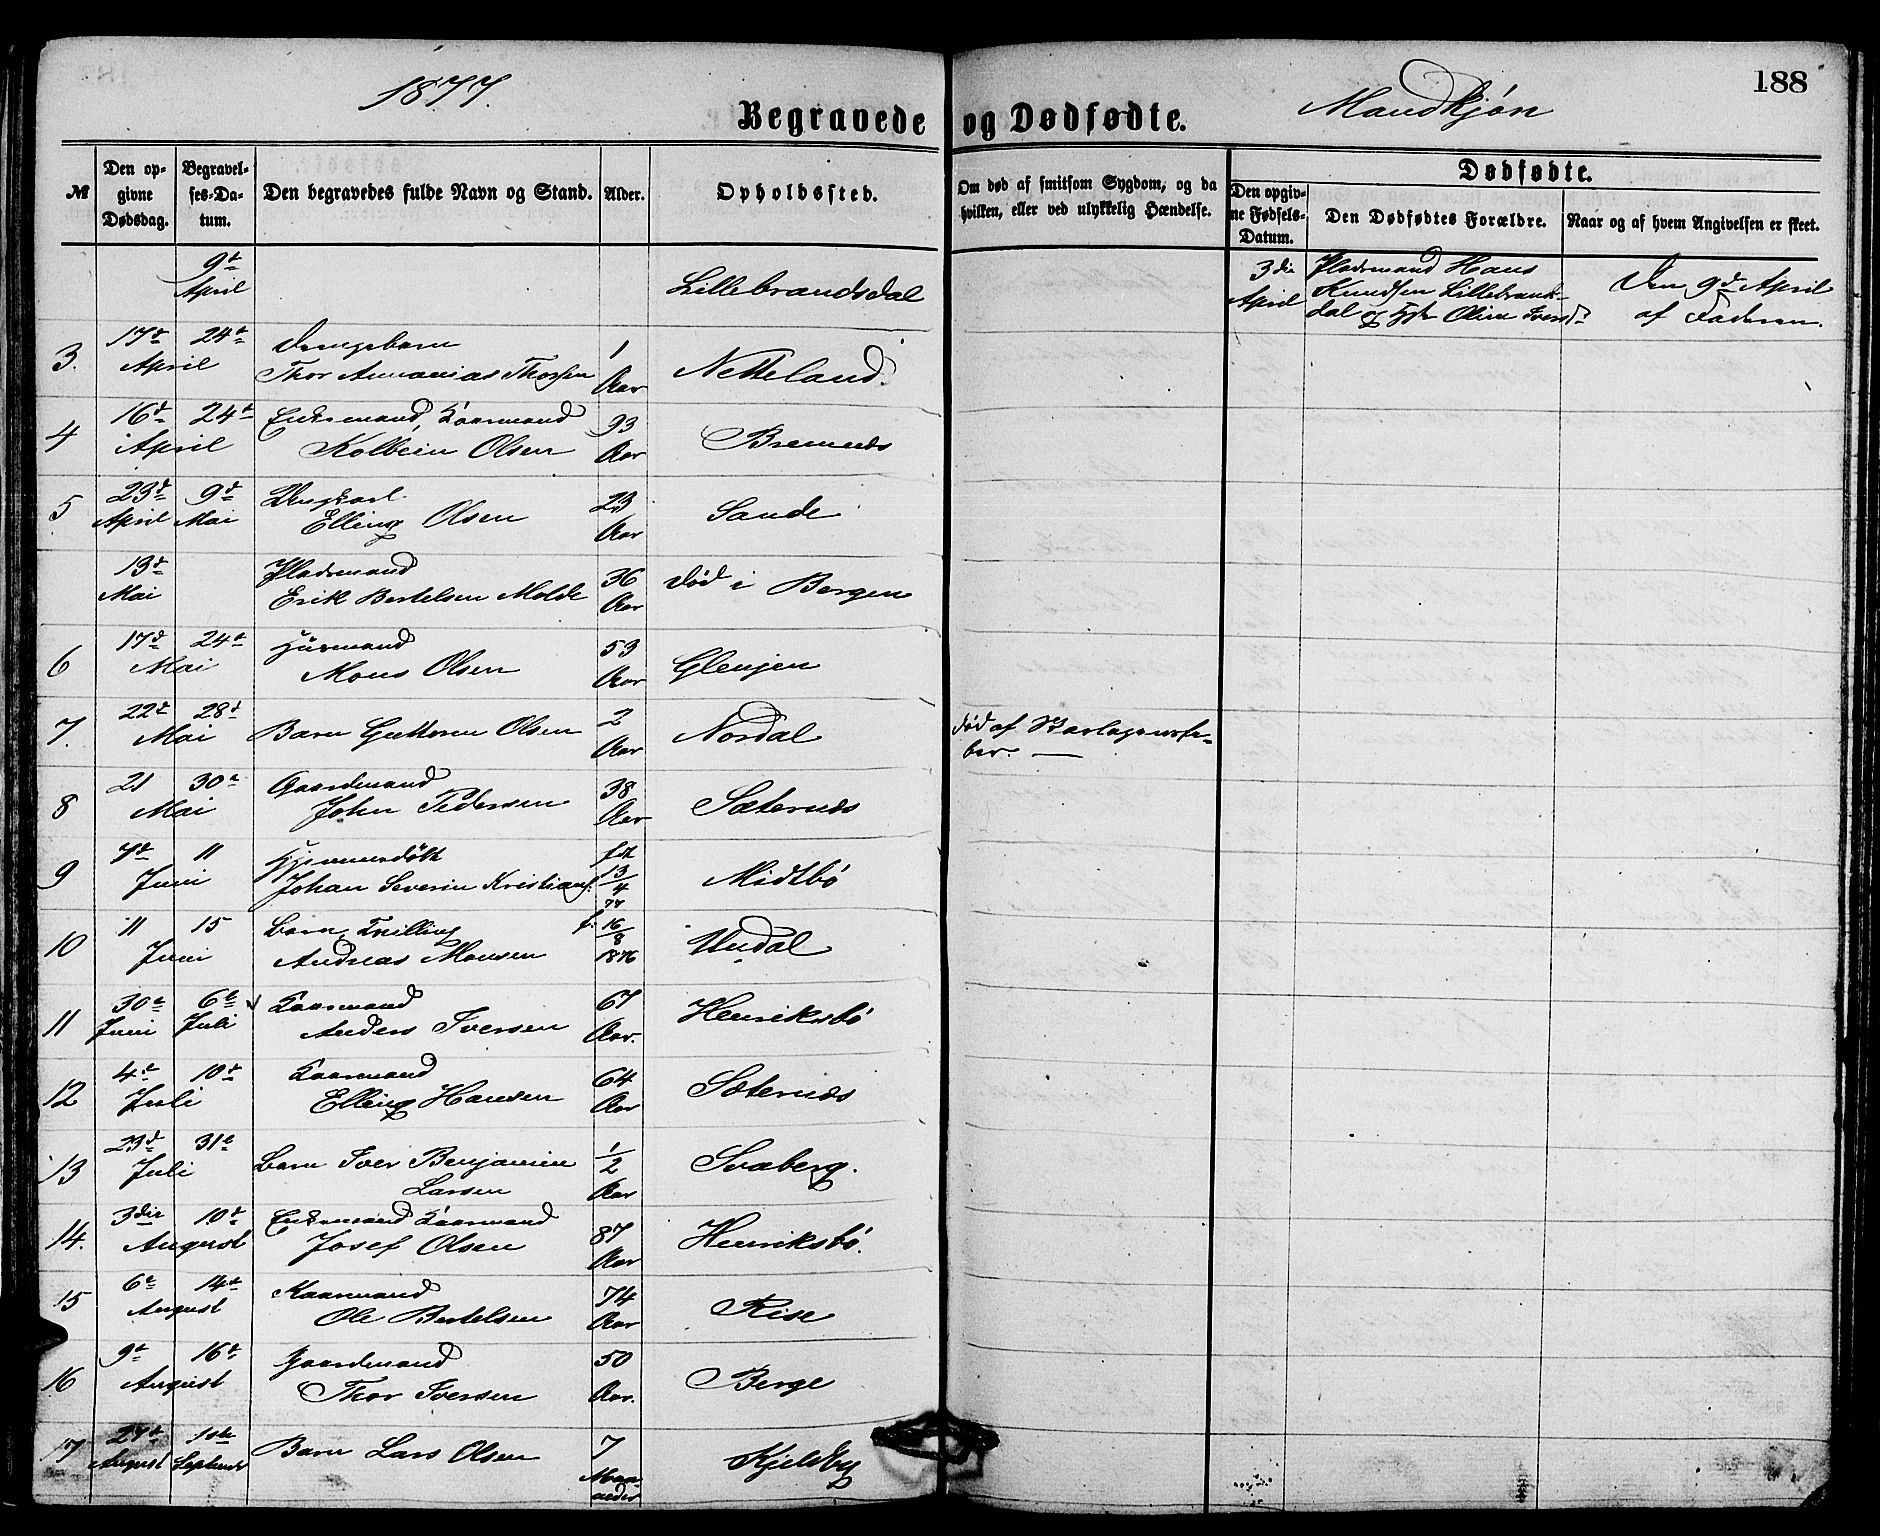 1877.
Begravede og Dødfødte.
Mandkjøn
188
№
Den opgivne Dødsdag.
Begravelses-Datum.
Den begravedes fulde Navn og Stand.
Alder.
Opholdssted.
Om død af smitsom Sygdom, og da hvilken, eller ved ulykkelig Hændelse.
Dødfødte.
Den opgivne Fødsels-Datum.
Den Dødfødtes Forældre.
Naar og af hvem Angivelsen er skeet.
9de April
Lillebrandsdal
3die April
Pladsmand Hans
Knudsen Lillebrands-
dal og Hstr Oline Iversd
Den 9de April
af Faderen.
3. 17de 24de April
Drengebarn
Thor Ananias Thorsen
1 Aar
Netteland
4 16de 24de April
Enkemand, Kaarmand
Kolbein Olsen
93 Aar
Bremnes
5 23de April 9de Mai
Ungkarl
Elling Olsen
23 Aar
Sande
13de Mai
Pladsmand
Erik Bertelsen Molde
36 Aar
død i Bergen
6 17de 24de Mai
Husmand
Mons Olsen
53 Aar
Glenjen
7. 22de 28de Mai
Barn Guttorm Olsen
2 Aar
Nordal
død af Skarlagensfe-
ber. —
8 21 30te Mai
Gaardmand
John Pedersen
38 Aar
Sæternes
9 7de 11 Juni
Hjemmedøbt
Johan Severin Kristians.
fdt 13/4 77
Midtbö
10 11 15 Juni
Barn, Tvilling
Andreas Monsen
f. 16/8 1876
Undal
11 30te Juni 6te Juli
Kaarmand
Anders Iversen
67 Aar.
Henriksbö
12 4de 10de Juli
Kaarmand
Elling Hansen
64 Aar
Sæternes
13 23de 31te Juli
Barn Iver Benjamin
Larsen
1/2 Aar
Svaberg.
14. 3die 10de August
Enkemand Kaarmand
Josef Olsen
87 Aar
Henriksbö.
15 6te 14de August
Kaarmand
Ole Bertelsen
74 Aar
Rise
16 9de 16de August
Gaardmand
Thor Iversen
50 Aar.
Berge
17 27de August 1ste September
Barn Lars Olsen
7 Maaneder
Kjelsby